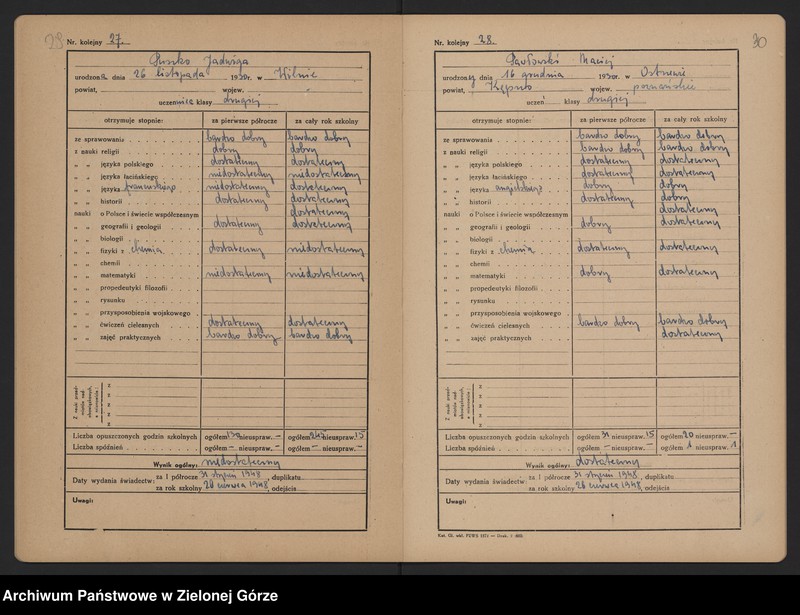 29
Nr. kolejny 27.
Jadwiga
urodzona dnia 26 listopada 1930 r. w Wilnie
powiat, wojew.
uczennica klasy drugiej
otrzymuje stopnie: za pierwsze półrocze za cały rok szkolny
ze sprawowania bardzo dobry bardzo dobry
z nauki religii dobry dobry
„ „ języka polskiego dostateczny dostateczny
„ „ języka łacińskiego niedostateczny niedostateczny
„ „ języka francuskiego niedostateczny dostateczny
„ „ historii dostateczny dostateczny
nauki o Polsce i świecie współczesnym dostateczny
„ „ geografii i geologii dostateczny dostateczny
„ „ biologii
„ „ fizyki z chemią dostateczny niedostateczny
„ „ chemii
„ „ matematyki niedostateczny niedostateczny
„ „ propedeutyki filozofii
„ „ rysunku
„ „ przysposobienia wojskowego
„ „ ćwiczeń cielesnych dostateczny dostateczny
„ „ zajęć praktycznych bardzo dobry bardzo dobry
Z nauki przedmiotów nadobowiązkowych, a mianowicie:
z
z
z
z
Liczba opuszczonych godzin szkolnych ogółem 130 nieuspraw. — ogółem 245 nieuspraw. 15
Liczba spóźnień ogółem — nieuspraw. — ogółem — nieuspraw. —
Wynik ogólny: niedostateczny
Daty wydania świadectw: za I półrocze 31 styczń 1948, duplikatu
za rok szkolny 26 czerwca 1948, odejścia
Uwagi:
30
Nr. kolejny 28.
Pawłowski Maciej
urodzony dnia 16 grudnia 1930 r. w
powiat, Kępno wojew. poznańskie
uczeń klasy drugiej
otrzymuje stopnie: za pierwsze półrocze za cały rok szkolny
ze sprawowania bardzo dobry bardzo dobry
z nauki religii bardzo dobry bardzo dobry
„ „ języka polskiego dostateczny dostateczny
„ „ języka łacińskiego dostateczny dostateczny
„ „ języka angielskiego dobry dobry
„ „ historii dostateczny dobry
nauki o Polsce i świecie współczesnym dostateczny
„ „ geografii i geologii dobry dostateczny
„ „ biologii
„ „ fizyki z chemią dostateczny dostateczny
„ „ chemii
„ „ matematyki dobry dostateczny
„ „ propedeutyki filozofii
„ „ rysunku
„ „ przysposobienia wojskowego
„ „ ćwiczeń cielesnych bardzo dobry bardzo dobry
„ „ zajęć praktycznych dostateczny
Z nauki przedmiotów nadobowiązkowych, a mianowicie:
z
z
z
z
Liczba opuszczonych godzin szkolnych ogółem 31 nieuspraw. 15 ogółem 20 nieuspraw. —
Liczba spóźnień ogółem — nieuspraw. — ogółem 1 nieuspraw. 1
Wynik ogólny: dostateczny
Daty wydania świadectw: za I półrocze 31 styczń 1948, duplikatu
za rok szkolny 26 czerwca 1948, odejścia
Uwagi:
Archiwum Państwowe w Zielonej Górze